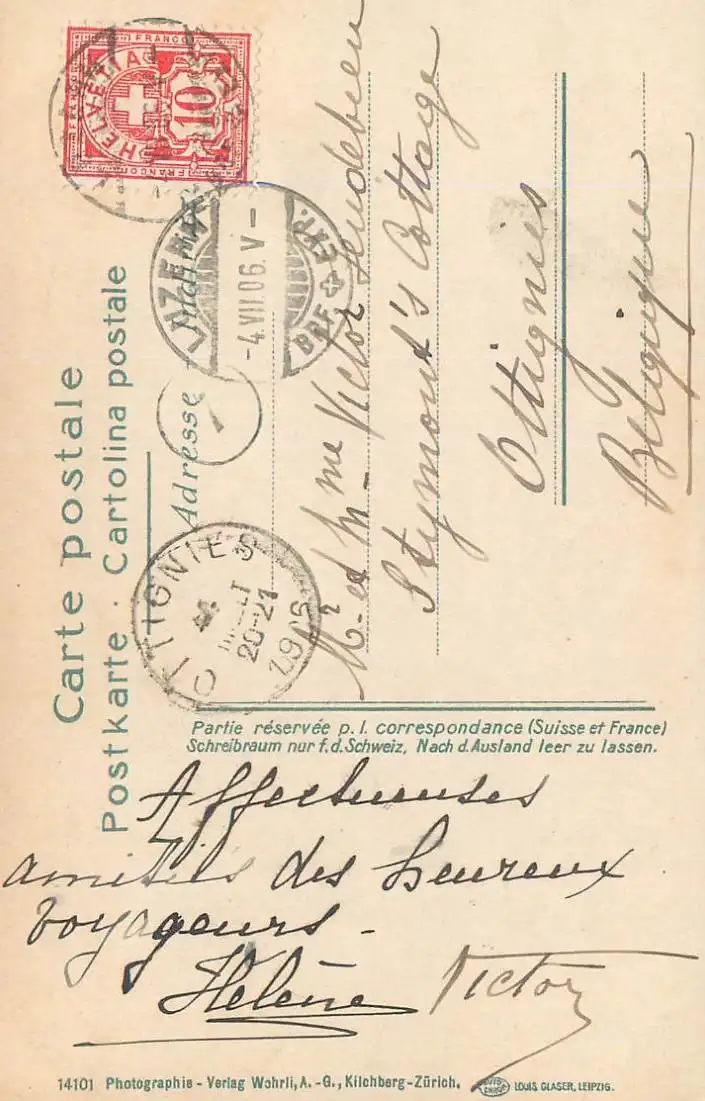 Carte postale
Postkarte · Cartolina postale
FRANCO
HELVETIA
10
FRANCO
LUZERN
-4.VII.06.V-
BRF. EXP.
Adresse
1
OTTIGNIES
4
20-21
1906
Mr et Mme Victor
Stymont's Cottage
Ottignies
Belgique
Partie réservée p. l. correspondance (Suisse et France)
Schreibraum nur f. d. Schweiz, Nach d. Ausland leer zu lassen.
Affectueuses
amitiés des heureux
voyageurs -
Helène Victor
14101 Photographie - Verlag Wehrli, A. - G., Kilchberg - Zürich.
LOUIS GLASER, LEIPZIG.